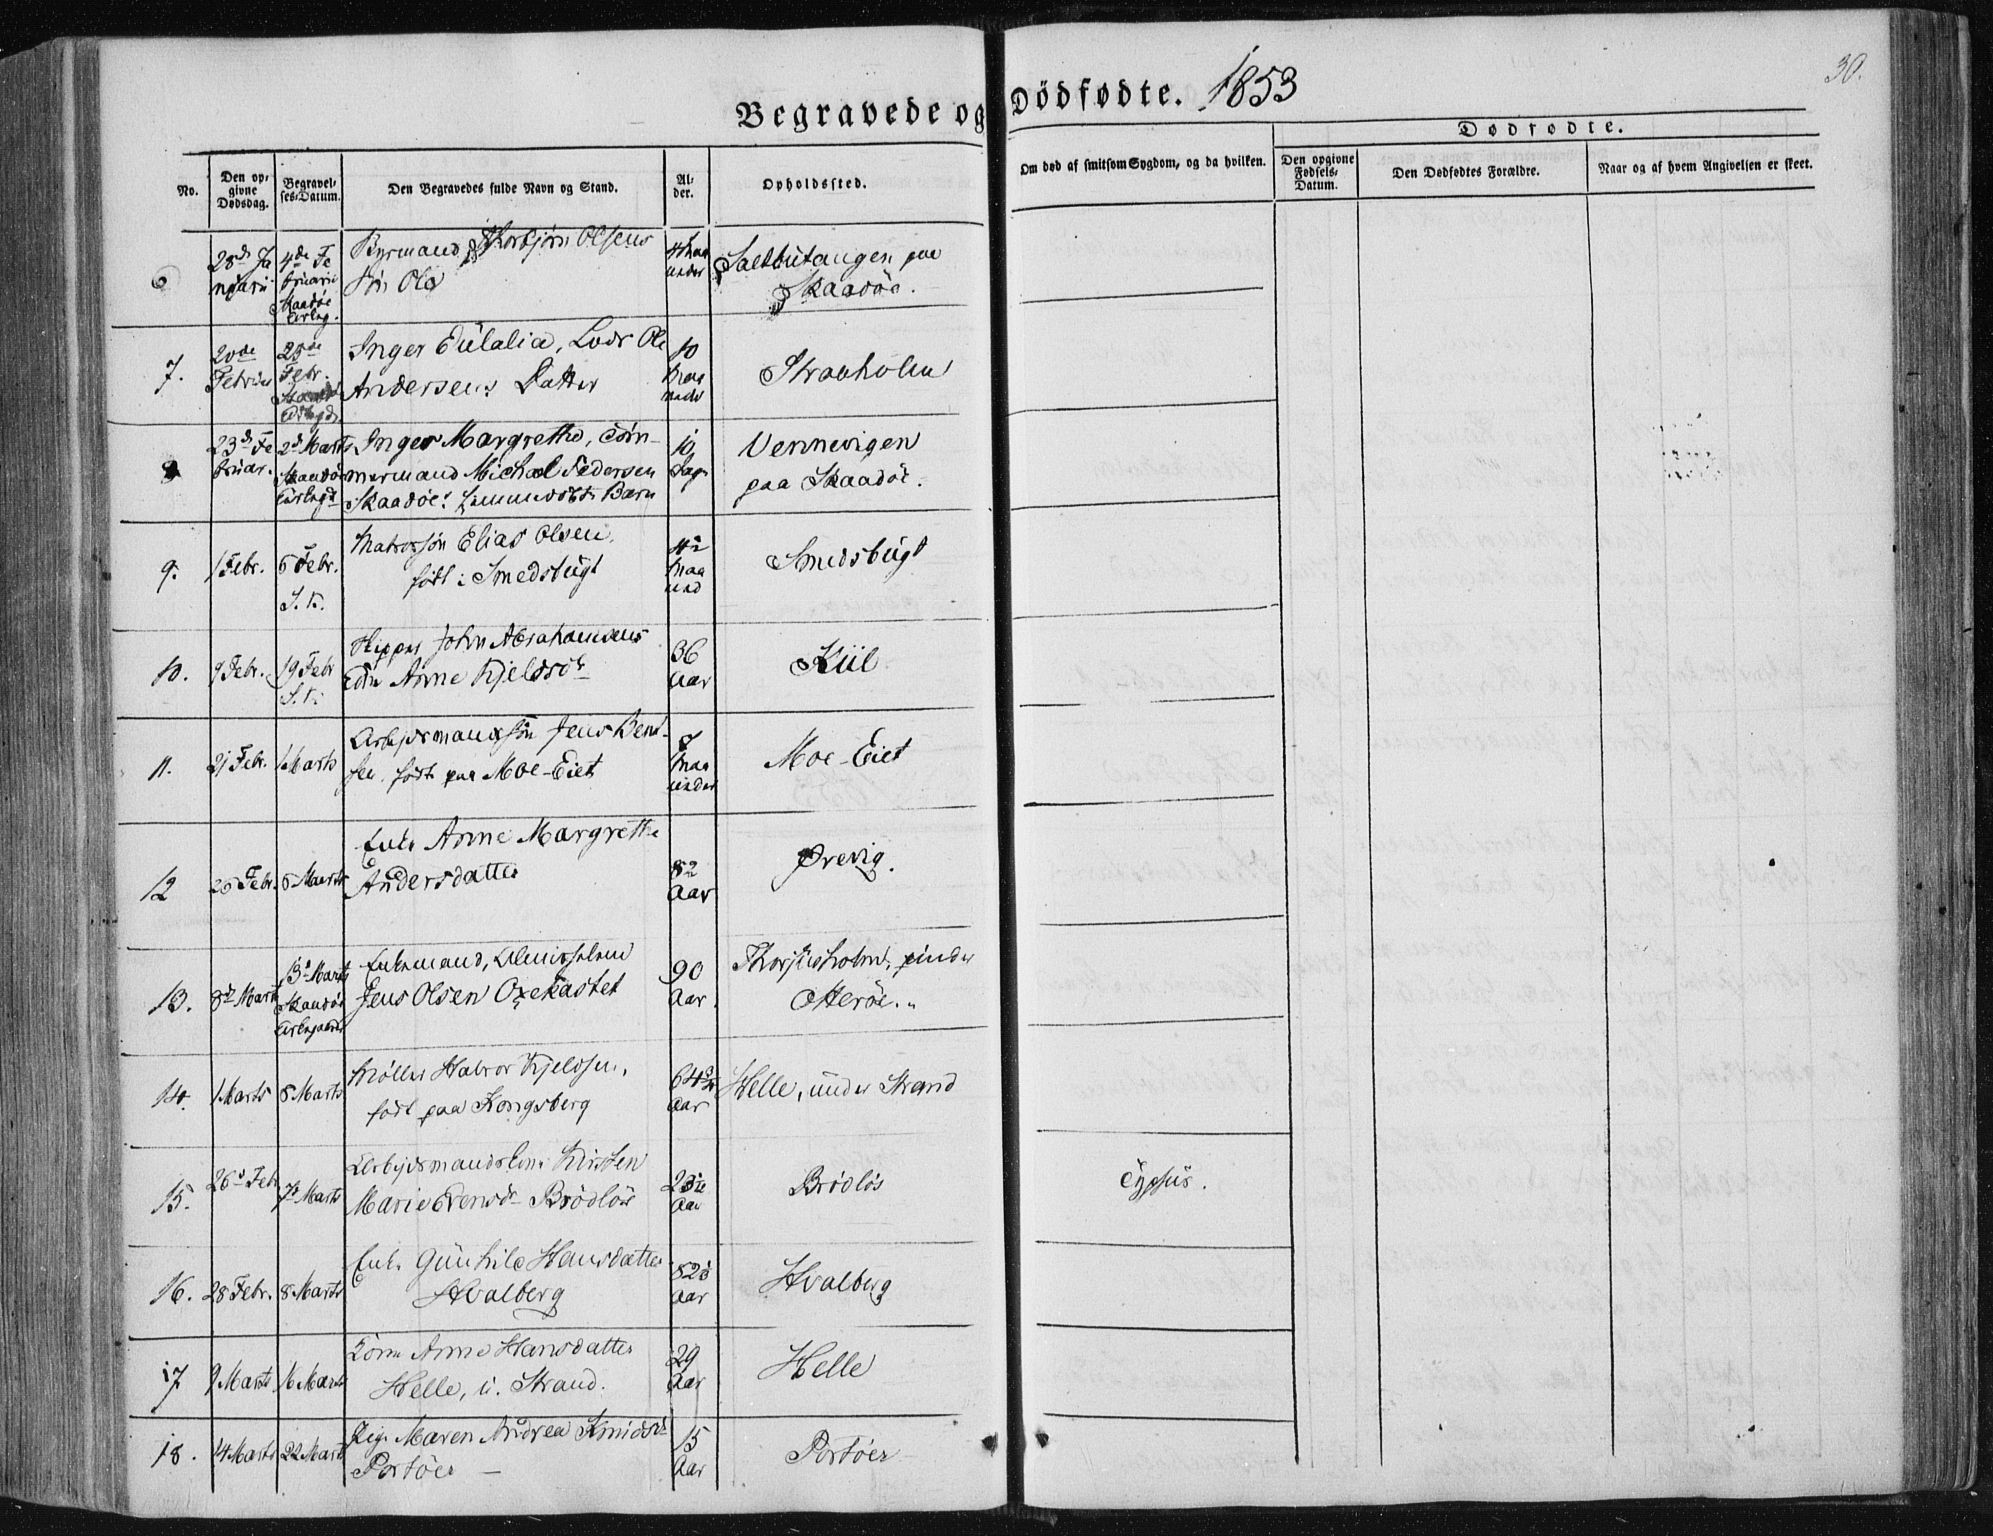 30.
Begravede og Dödfødte. 1853
Dødfødte.
No.
Den op-
givne
Dødsdag.
Begravel-
ses-Datum.
Den Begravedes fulde Navn og Stand.
Al-
der.
Opholdssted.
Om død af smitsom Sygdom, og da hvilken.
Den opgivne
Fødsels-
Datum.
Den Dødfødtes Forældre.
Naar og af hvem Angivelsen er skeet.
6
28de Ja
nuarii
4de Fe
bruarii
Skaadöe
Olsens
Sön Ole
4 Maa
neder
Saltbutangen paa
Skaadöe.
7.
20de
Februar
25de
Febr.
Inger Eülalia, Lods Ole
Andersens Datter
10
Maa
neder
Straaholm
8
23de Fe
bruar.
2de Marts
Skaadöe
Inger Margrethe, Töm-
mermand Michael Pedersen
Skaadöe: Barn
10
Dage
Vennevigen
paa Skaadöe.
9.
1 Febr.
6 Febr.
S. K.
Matrossön Elias Olsen,
född i Smedsbügt
Maa
ned
Smedsbügt
10.
9 Febr.
19 Febr
S. K.
John Abrahamsens
Anne Kjeldsd
36
Aar
Kiil
11.
21 Febr.
1 Marts
Arbejdsmandssön Jens Bent-
sen, född paa Moe-Eiet
8
Maa
neder
Moe-Eiet
12
26 Febr.
6 Marts
Enke Anne Margrethe
Andersdatter
82
Aar
Ørevig.
13.
8de Marts
13de Marts
Skaadöe
Enkemand, Almisselem
Jens Olsen Oxekastet
90
Aar.
Thorjusholm, under
Otteröe.
14.
1 Marts
8 Marts
Möller Halvor Kjeldsen,
född paa Kongsberg
64
Aar
Helle, ünder Strand
15.
26de Febr
7de Marts
Arbejdsmandskone Kirsten
Marie Evensdr Brödlös
23
Aar
Brödlös
Typhüs.
16.
28 Febr.
8 Marts
Enke Günhild Hansdatter
Hvalberg
82
Aar
Hvalberg
17
9 Marts
16 Marts
Anne Hansdatter
Helle, ü. Strand.
29
Aar
Helle
18.
14 Marts
22 Marts
Pige Maren Andrea Knudsd
Portöer
15
Aar
Portöer